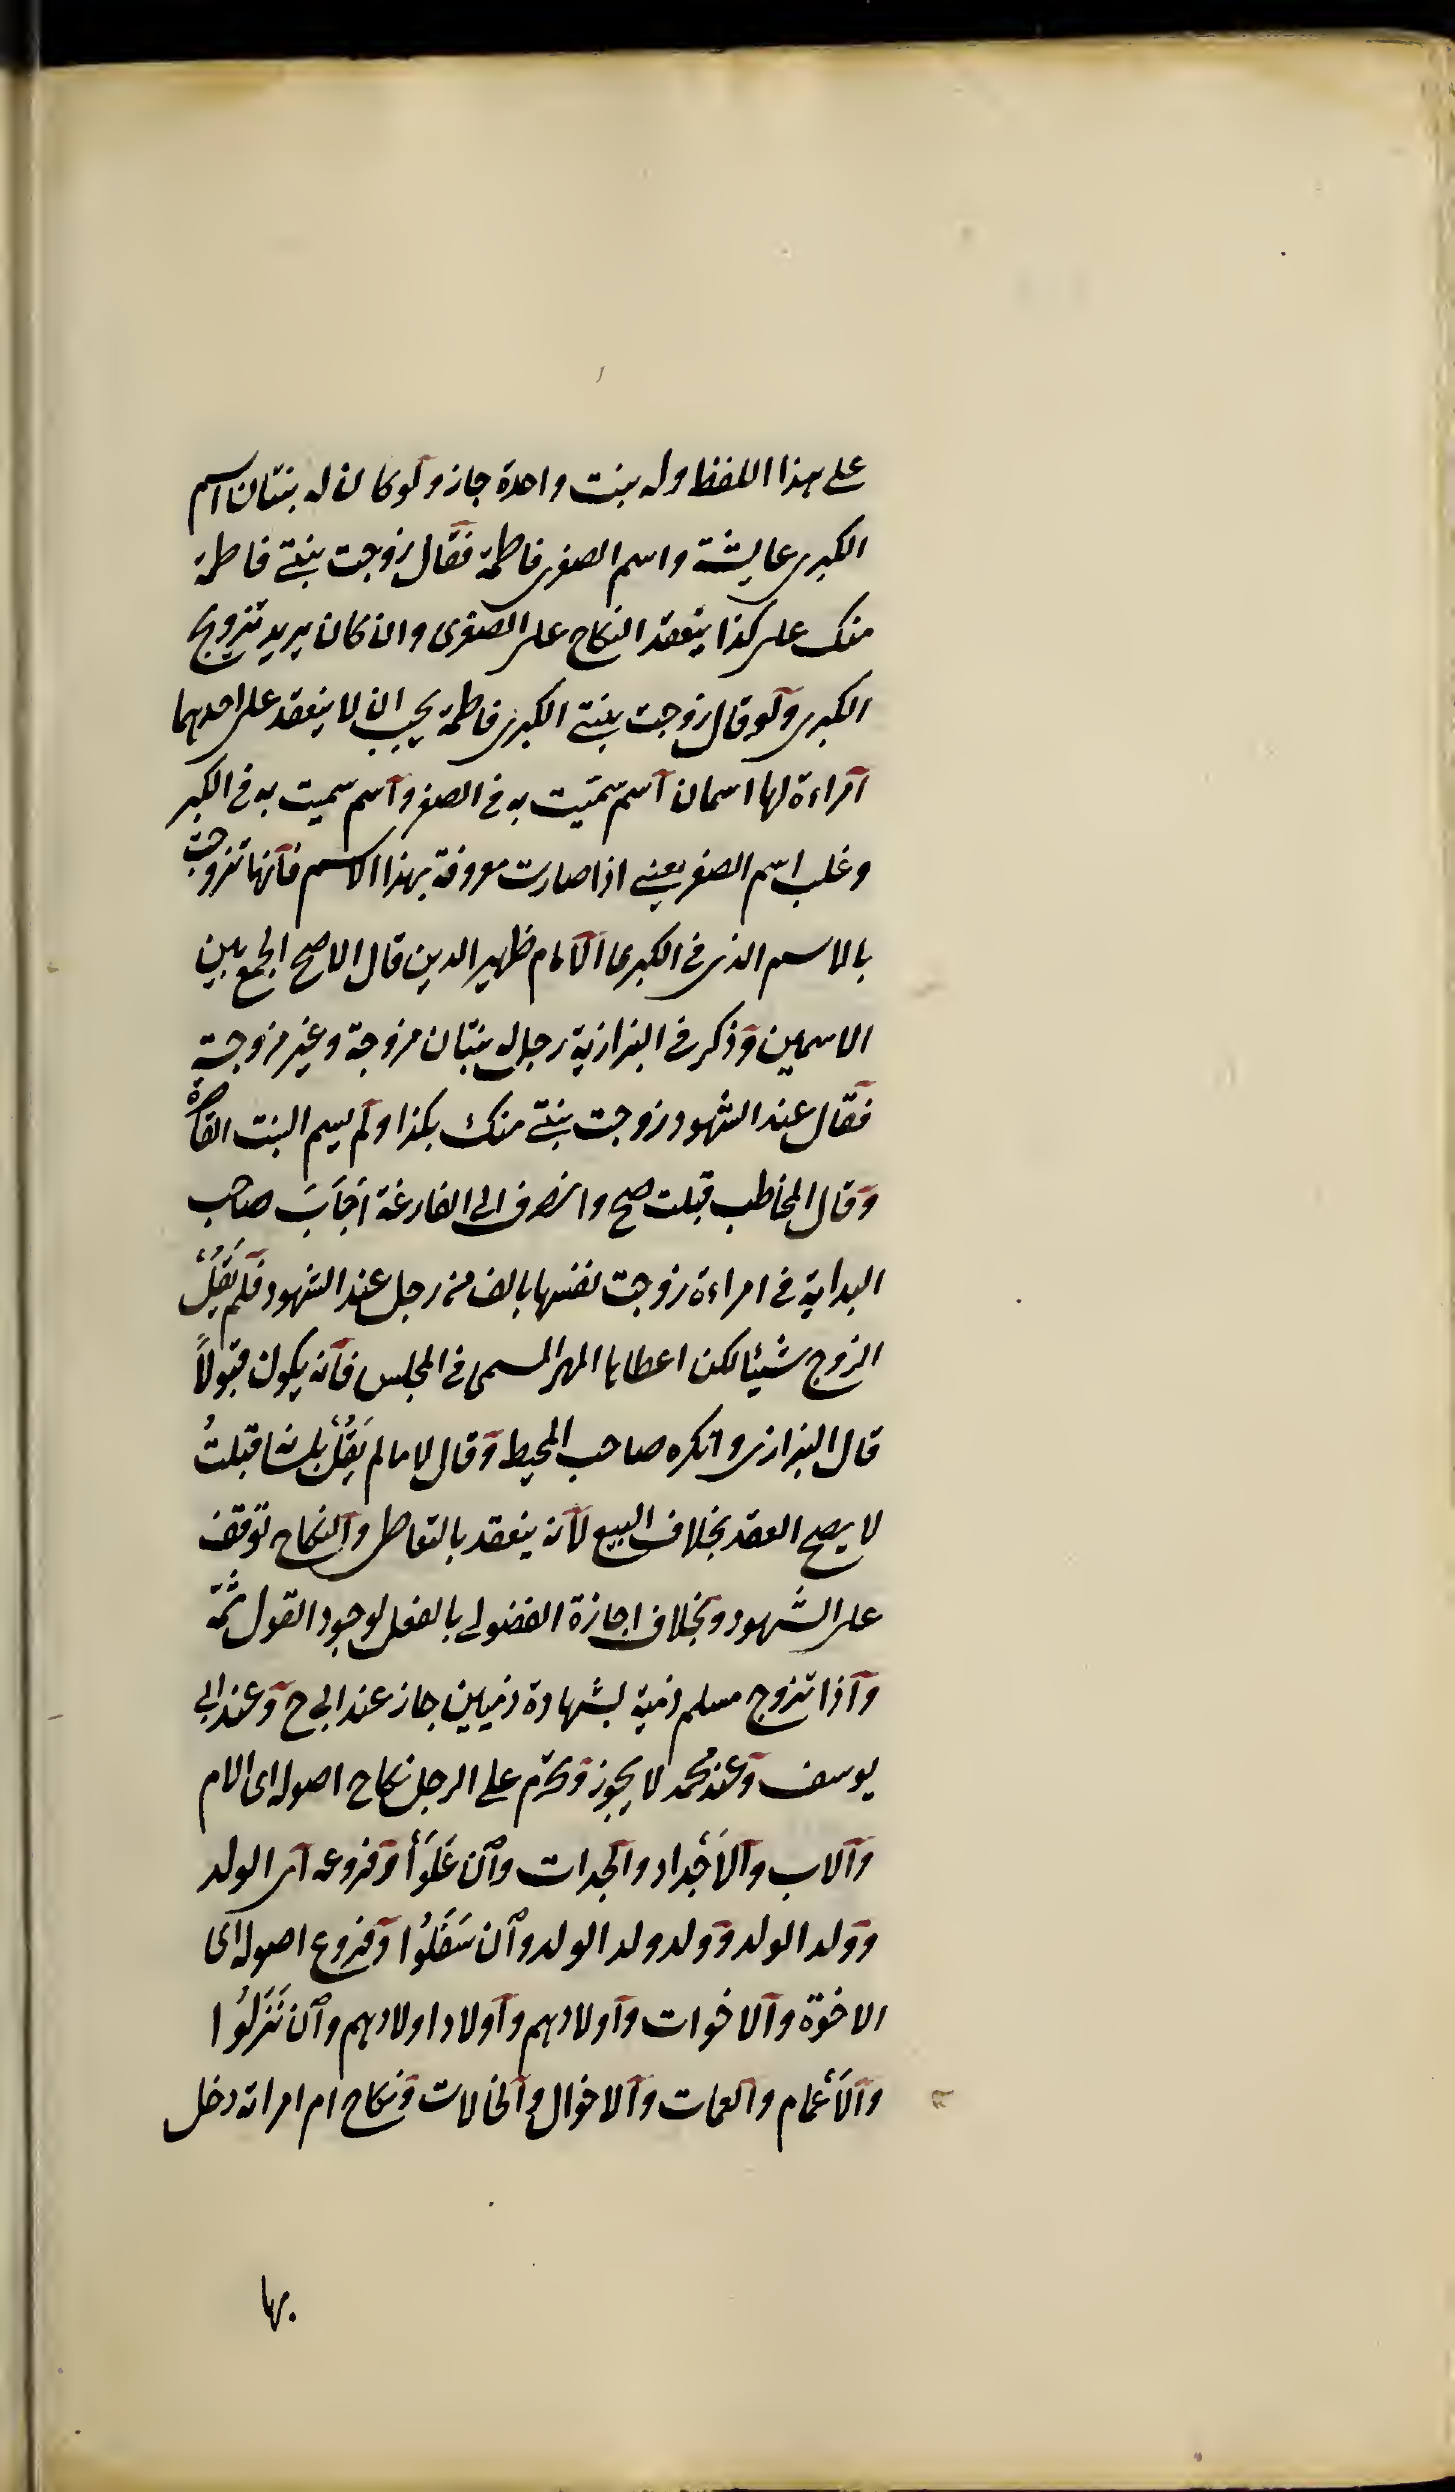 على هذا اللفظ وله بنت واحدة جاز ولو كان له بنتان اسم
الكبرى عايشة واسم الصغرى فاطمة فقال زوجت بنتي فاطمة
منك على كذا ينعقد النكاح على الصغرى وان كان يريد تزويج
الكبرى ولو قال زوجت بنتي الكبرى فاطمة يجب ان لا ينعقد على احدهما
امراءة لها اسمان اسم سميت به في الصغر واسم سميت به في الكبر
وغلب اسم الصغر يعني اذا صارت معروفة بهذا الاسم فانها تزوجت
بالاسم الذي في الكبر الامام ظهير الدين قال الاصح الجمع بين
الاسمين وذكر في البزازية رجل له بنتان مزوجة وغير مزوجة
فقال عند الشهود زوجت بنتي منك بكذا ولم يسم البنت
وقال المخاطب قبلت صح وانصرف الى الفارغة اجاب صاحب
البداية في امراءة زوجت نفسها بالف من رجل عند الشهود فلم يَقُلْ
الزوج شيئا لكن اعطاها المهر المسمى في المجلس فانه يكون قبولاً
قال البزازي وانكره صاحب المحيط وقال لا مالم يَقُلْ بلسانه قبلتُ
لا يصح العقد بخلاف البيع لانه ينعقد بالتعاطي والنكاح توقف
على الشهود وبخلاف اجازة الفضولي بالفعل لوجود القول ثَمّة
واذا تزوج مسلم ذمية بشهادة ذميين جاز عند ابي ح وعند ابي
يوسف وعند محمد لا يجوز وتحرم على الرجل نكاح اصوله اى الام
والاب والاَجْداد والجدات وان عَلَوْا وفروعه اى الولد
وولد الولد وولد ولد الولد وان سَفَلُوا وفروع اصوله اى
الاخوة والاخوات واولادهم واولاد اولادهم وان نَزَلُوا
والاَعْمام والعمات والاخوال والخالات ونكاح ام امراته دخل
بها